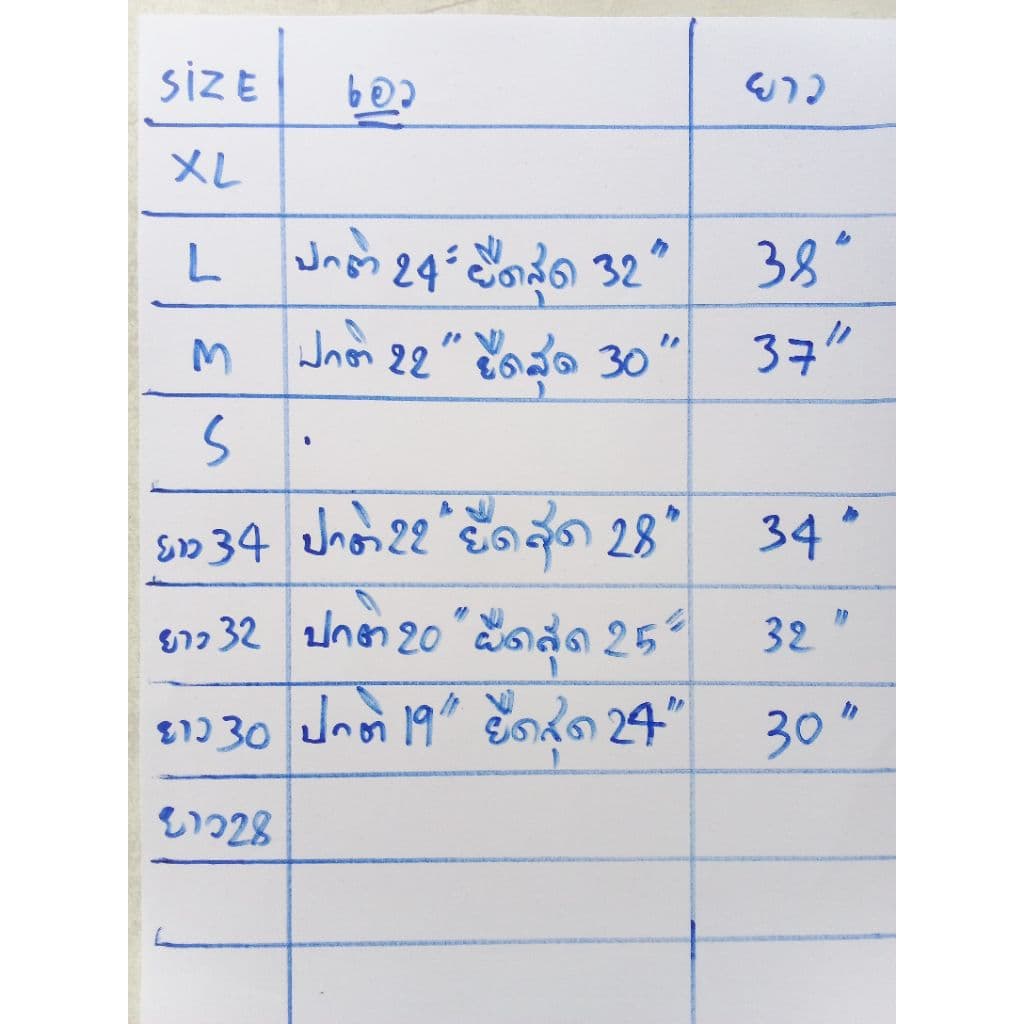 SiZE เอว ยาว
XL
L ปกติ 24" ยืดสุด 32" 38"
M ปกติ 22" ยืดสุด 30" 37"
S
ยาว 34 ปกติ 22" ยืดสุด 28" 34"
ยาว 32 ปกติ 20" ยืดสุด 25" 32"
ยาว 30 ปกติ 19" ยืดสุด 24" 30"
ยาว 28